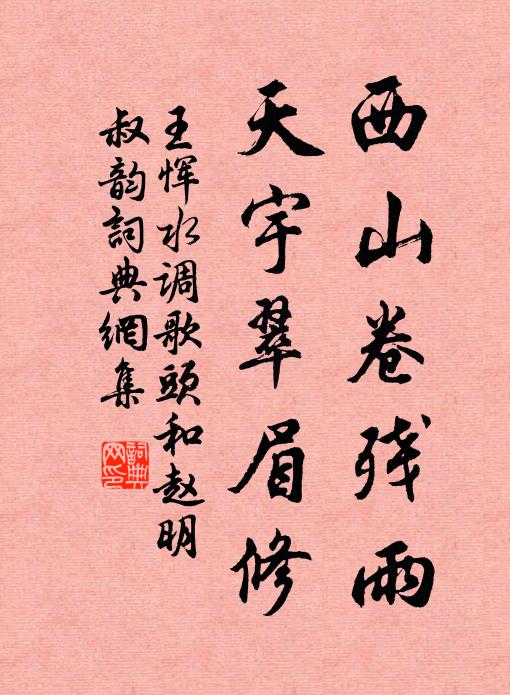 西山卷残雨
天宇翠眉修
王恽水调歌头和赵明
叔韵词典網集
詞典
网印